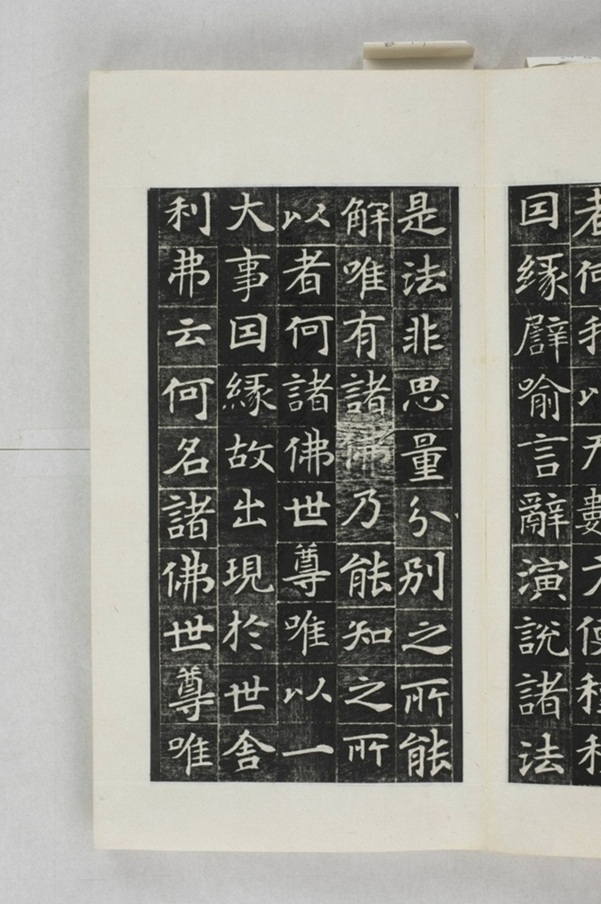 者何我以无數方便種種
囙緣譬喻言辭演說諸法
是法非思量分別之所能
解唯有諸佛乃能知之所
以者何諸佛世尊唯以一
大事囙緣故出現於世舎
利弗云何名諸佛世尊唯